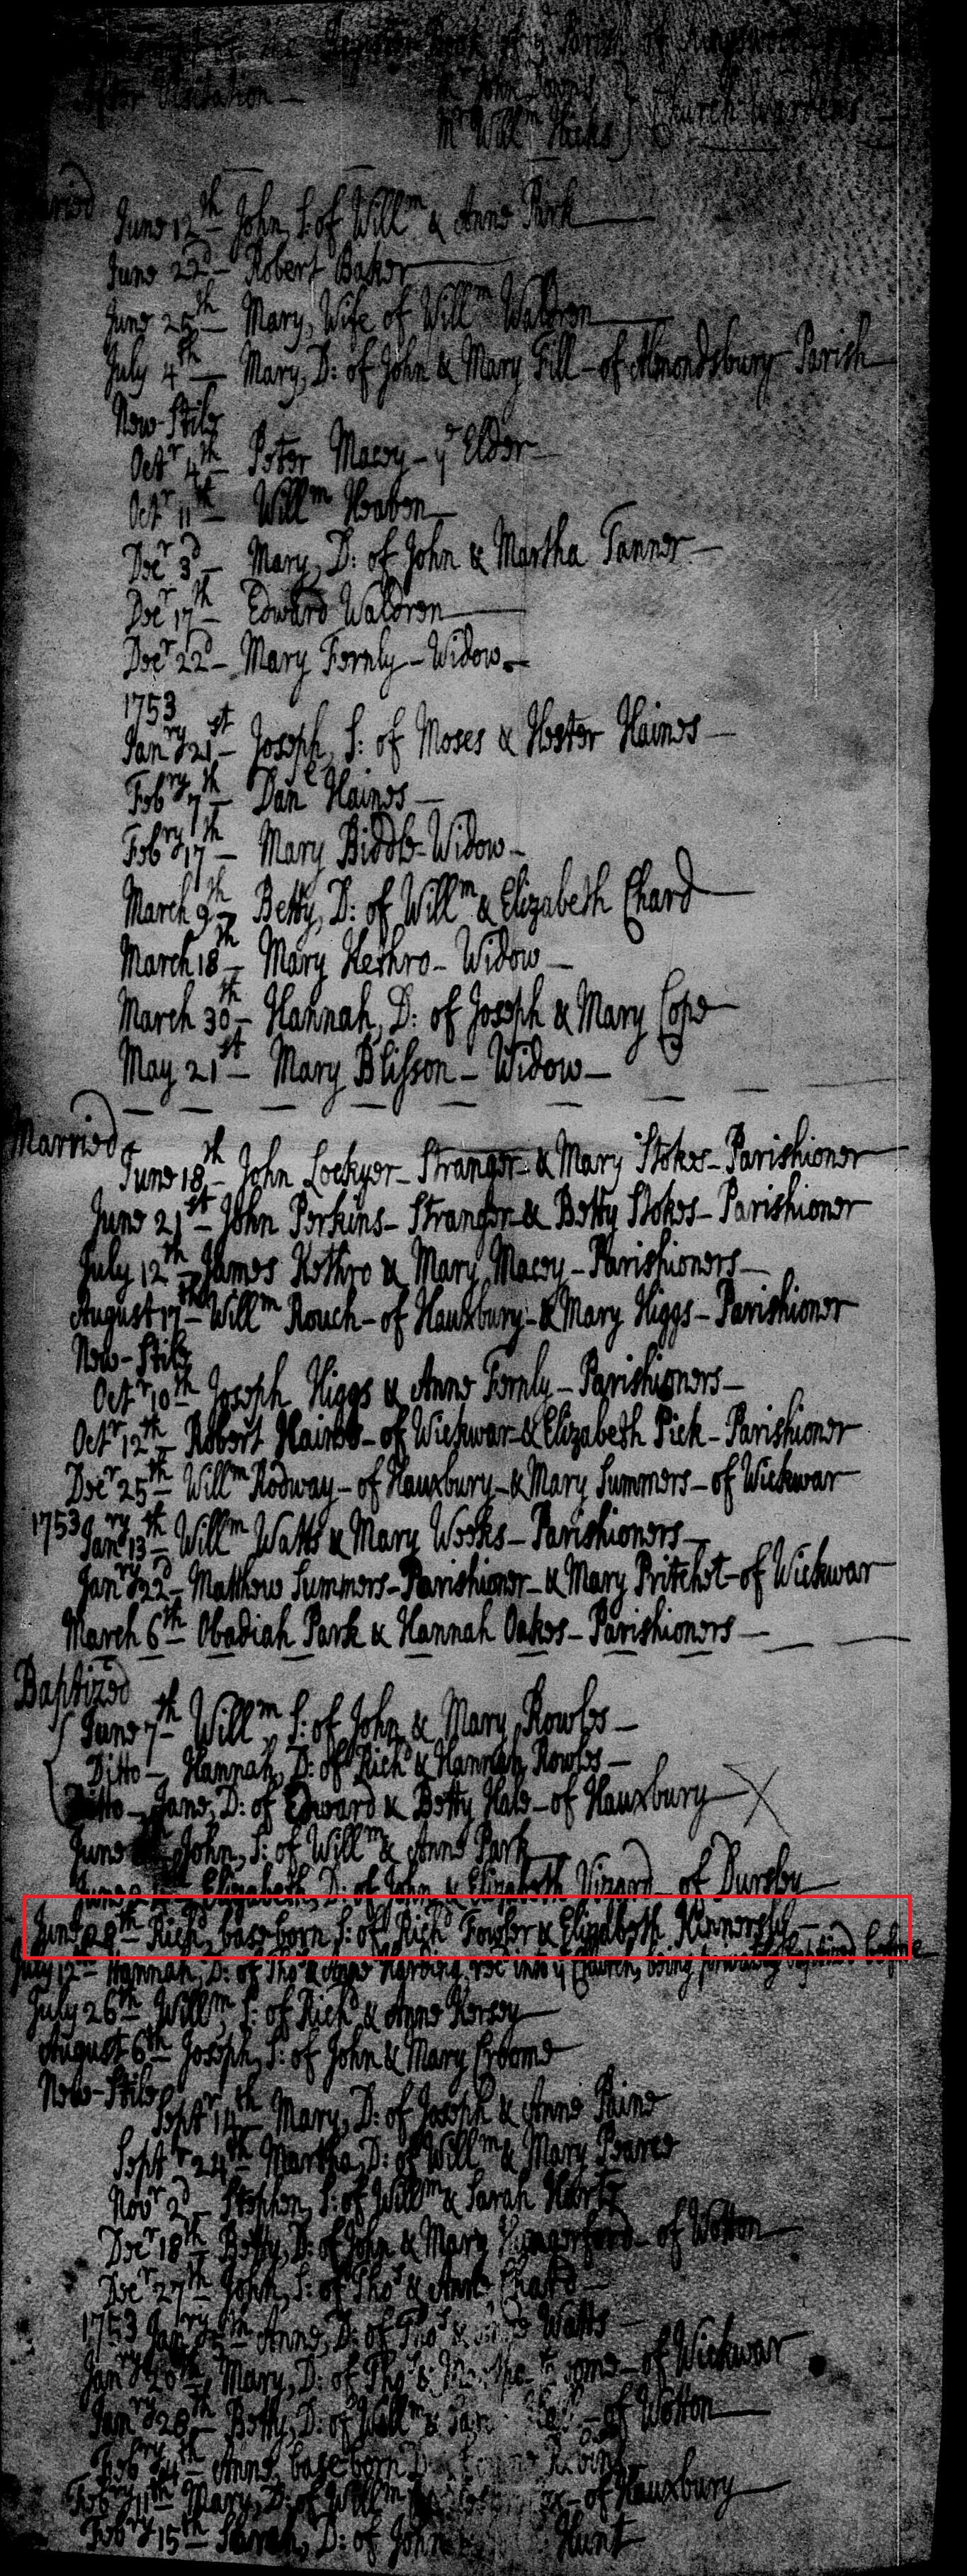 the Register Book of ye Parish of
After Visitation —
Mr John
Mr Willm Hicks } Church Wardens
June 12th John, S: of Willm & Anne Park
June 22d — Robert Baker
June 25th — Mary, Wife of Willm Waldron
July 4th — Mary, D: of John & Mary Fill — of Almondsbury Parish
New-Stile
Octr 4th — Peter Macey — ye Elder —
Octr 11th — Willm Heaben —
Decr 3d — Mary, D: of John & Martha Tanner —
Decr 17th Edward Waldron
Decr 22d — Mary Fernly — Widow —
1753
Janry 21st — Joseph, S: of Moses & Hester Haines —
Febry 7th — Danl Haines —
Febry 17th — Mary Biddle — Widow —
March 9th — Betty, D: of Willm & Elizabeth Chard
March 18th — Mary Hethro — Widow —
March 30th — Hannah, D: of Joseph & Mary Cope
May 21st — Mary Blisson — Widow —
Married
June 18th — John Lockyer — Stranger — & Mary Stokes — Parishioner
June 21st — John Perkins — Stranger & Betty Stokes — Parishioner
July 12th — James Hethro & Mary Macey — Parishioners —
August 17th — Willm Rouch — of Hauxbury — & Mary Higgs — Parishioner
New-Stile
Octr 10th Joseph Higgs & Anne Fernly — Parishioners —
Octr 12th — Robert Haines — of Wickwar — & Elizabeth Pick — Parishioner
Decr 25th — Willm Rodway — of Hauxbury — & Mary Summers — of Wickwar
1753 Janry 13th Willm Watts & Mary Weeks — Parishioners —
Janry 22d — Matthew Summers — Parishioner — & Mary Pritchet — of Wickwar
March 6th — Obadiah Park & Hannah Oakes — Parishioners —
Baptized
June 7th — Willm, S: of John & Mary Rowles —
Ditto — Hannah, D: of Richd & Hannah Rowles —
Ditto — Jane, D: of Edward & Betty Hale — of Hauxbury — X
June John, S: of Willm & Anne Park
June Elizabeth, D: of John & Elizabeth Vizard — of Dursley
June 28th — Richd, base born S: of Richd Fowler & Elizabeth Kinnersly —
July 12th — Hannah, D: of Thos & Anne Harding, rec into ye Church, being privately baptized before
July 26th Willm, S: of Richd & Anne Kersey
August 6th Joseph, S: of John & Mary Croome
New-Stile
Septr 14th — Mary, D: of Joseph & Anne Paine
Septr 24th — Martha, D: of Willm & Mary Pearce
Novr 2d — Stephen, S: of Willm & Sarah
Decr 18th Betty, D: of John & Mary Hungerford — of Wotton
Decr 27th John, S: of Thos & Anne Chard
1753 Janry 5th Anne, D: of Thos & Watts —
Janry 20th, Mary, D: of Thos & — of Wickwar
Janry 28th — Betty, D: of Willm & — of Wotton
Febry 4th — Anne, base born D
Febry 11th — Mary, D: of Willm — of Hauxbury
Febry 15th — Sarah, D: of John Hunt